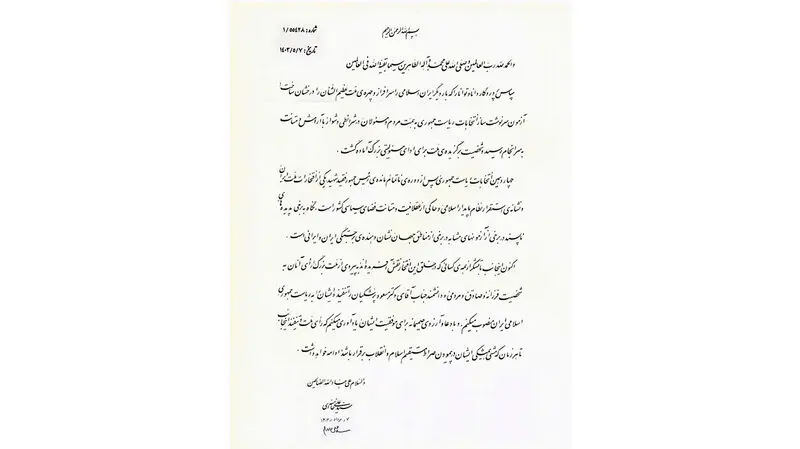 بسم الله الرحمن الرحیم
شماره: ۱/۵۵۴۲۸
تاریخ: ۱۴۰۳/۵/۷
والحمدلله رب العالمین و صلی الله علی محمد و آله الطاهرین سیما بقیة الله فی العالمین
سپاس پروردگار دانا و توانا را که بار دیگر ایران اسلامی را سرافراز و چهره‌ی ملت عظیم الشأن را درخشان ساخت و
آزمون سرنوشت ساز انتخابات ریاست جمهوری به همت مردم و مسئولان در شرائطی دشوار با آرامش و متانت
به سرانجام رسید و شخصیت برگزیده‌ی ملت برای ادای مسئولیتی بزرگ آماده گشت.
چهاردهمین انتخابات ریاست جمهوری پس از دوره‌ی ناتمام مانده‌ی رئیس جمهور فقید شهید، یکی از افتخارات ملت ایران
و نشانه‌ی استقرار نظام پایدار اسلامی و حاکی از عقلانیت و متانت فضای سیاسی کشور است، نگاه به برخی پدیده‌های
ناپسند در برخی از آزمونهای مشابه در برخی از مناطق جهان نشان دهنده‌ی برجستگی ایران و ایرانی است.
اکنون اینجانب با تشکر از همه‌ی کسانی که در خلق این افتخار نقش آفریده‌اند به پیروی از ملت بزرگ، رأی آنان به
شخصیت فرزانه و صادق و مردمی و دانشمند جناب آقای دکتر مسعود پزشکیان را تنفیذ و ایشان را به ریاست جمهوری
اسلامی ایران منصوب میکنم. و با دعا و آرزوی صمیمانه برای موفقیت ایشان یادآوری میکنم که رأی ملت و تنفیذ اینجانب
تا هر زمان که مشی همیشگی ایشان در پیمودن صراط مستقیم اسلام و انقلاب برقرار باشد ادامه خواهد داشت.
والسلام علی عباد الله الصالحین
سیدعلی خامنه‌ای
۷ مرداد ۱۴۰۳